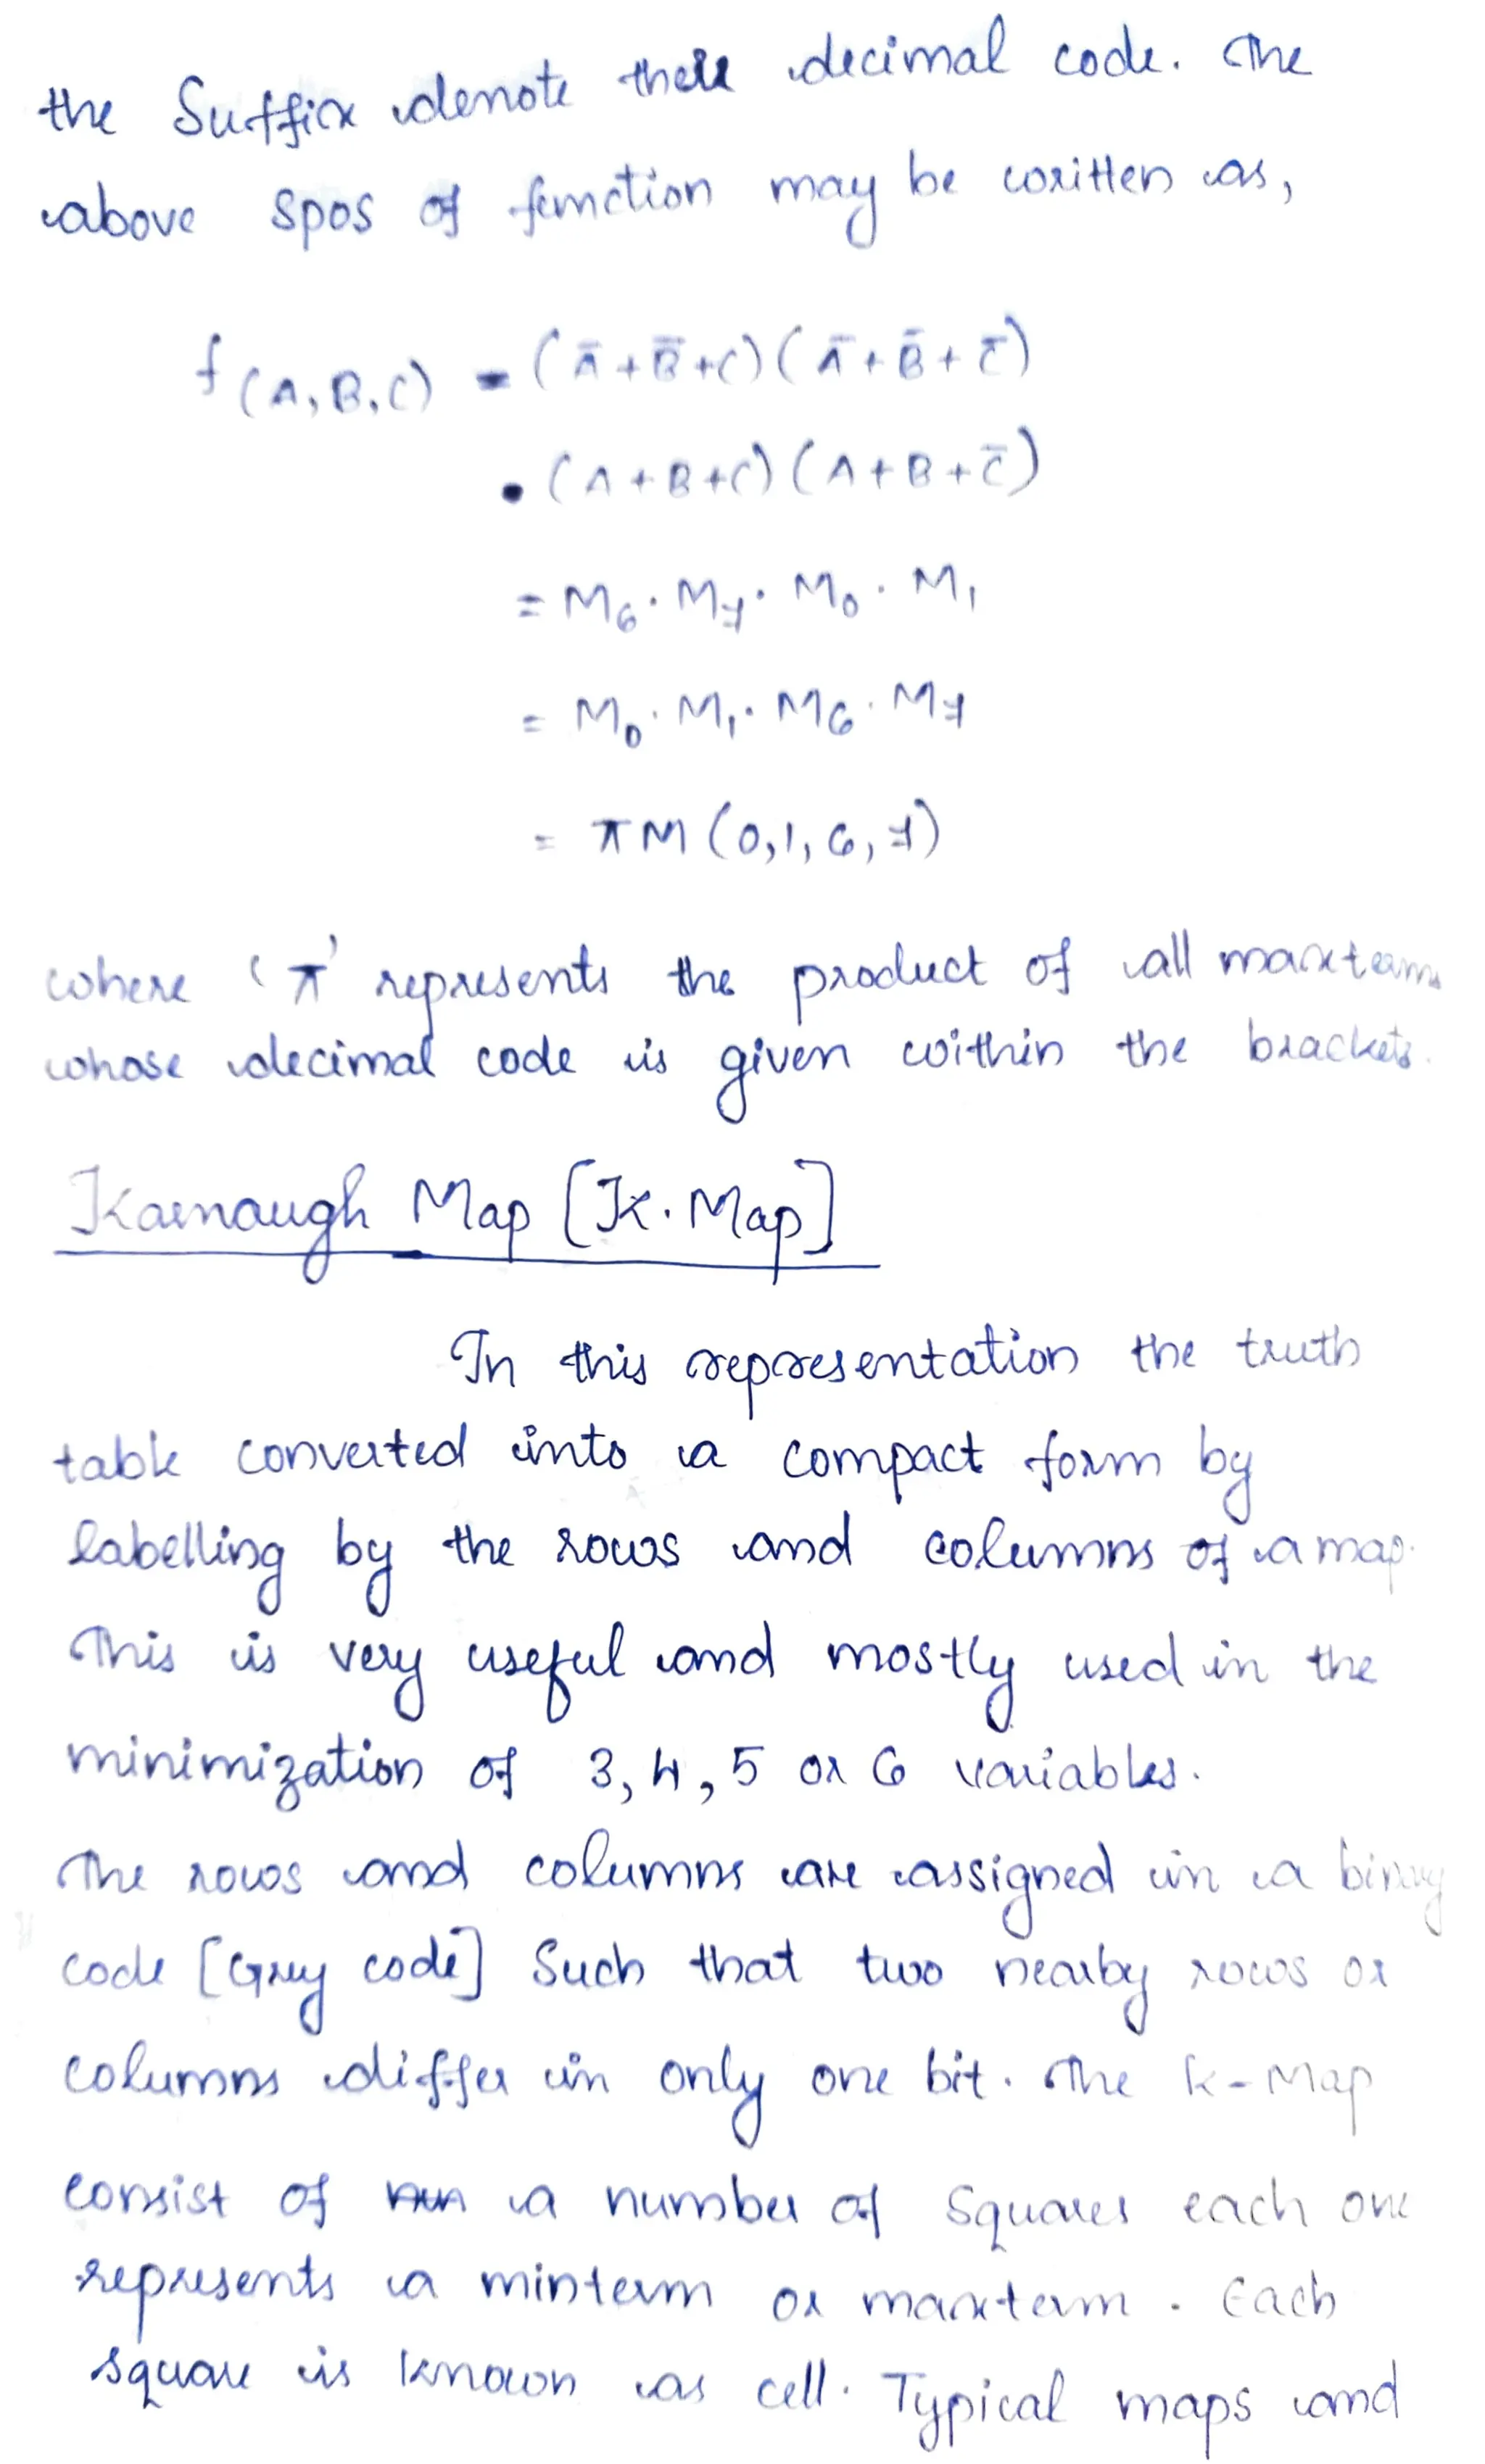 the Suffix denote their decimal code. The
above Spos of function may be written as,
f(A,B,C) = (Ā+B̄+C)(Ā+B̄+C̄)
• (A+B+C)(A+B+C̄)
= M6 · M7 · M0 · M1
= M0 · M1 · M6 · M7
= πM(0,1,6,7)
where 'π' represents the product of all maxterms
whose decimal code is given within the brackets.
Karnaugh Map [K.Map]
In this representation the truth
table converted into a compact form by
labelling by the rows and columns of a map.
This is very useful and mostly used in the
minimization of 3,4,5 or 6 variables.
The rows and columns are assigned in a binary
code [Grey code] Such that two nearby rows or
columns differ in only one bit. The K-Map
consist of a number of Squares each one
represents a minterm or maxterm. Each
square is known as cell. Typical maps and